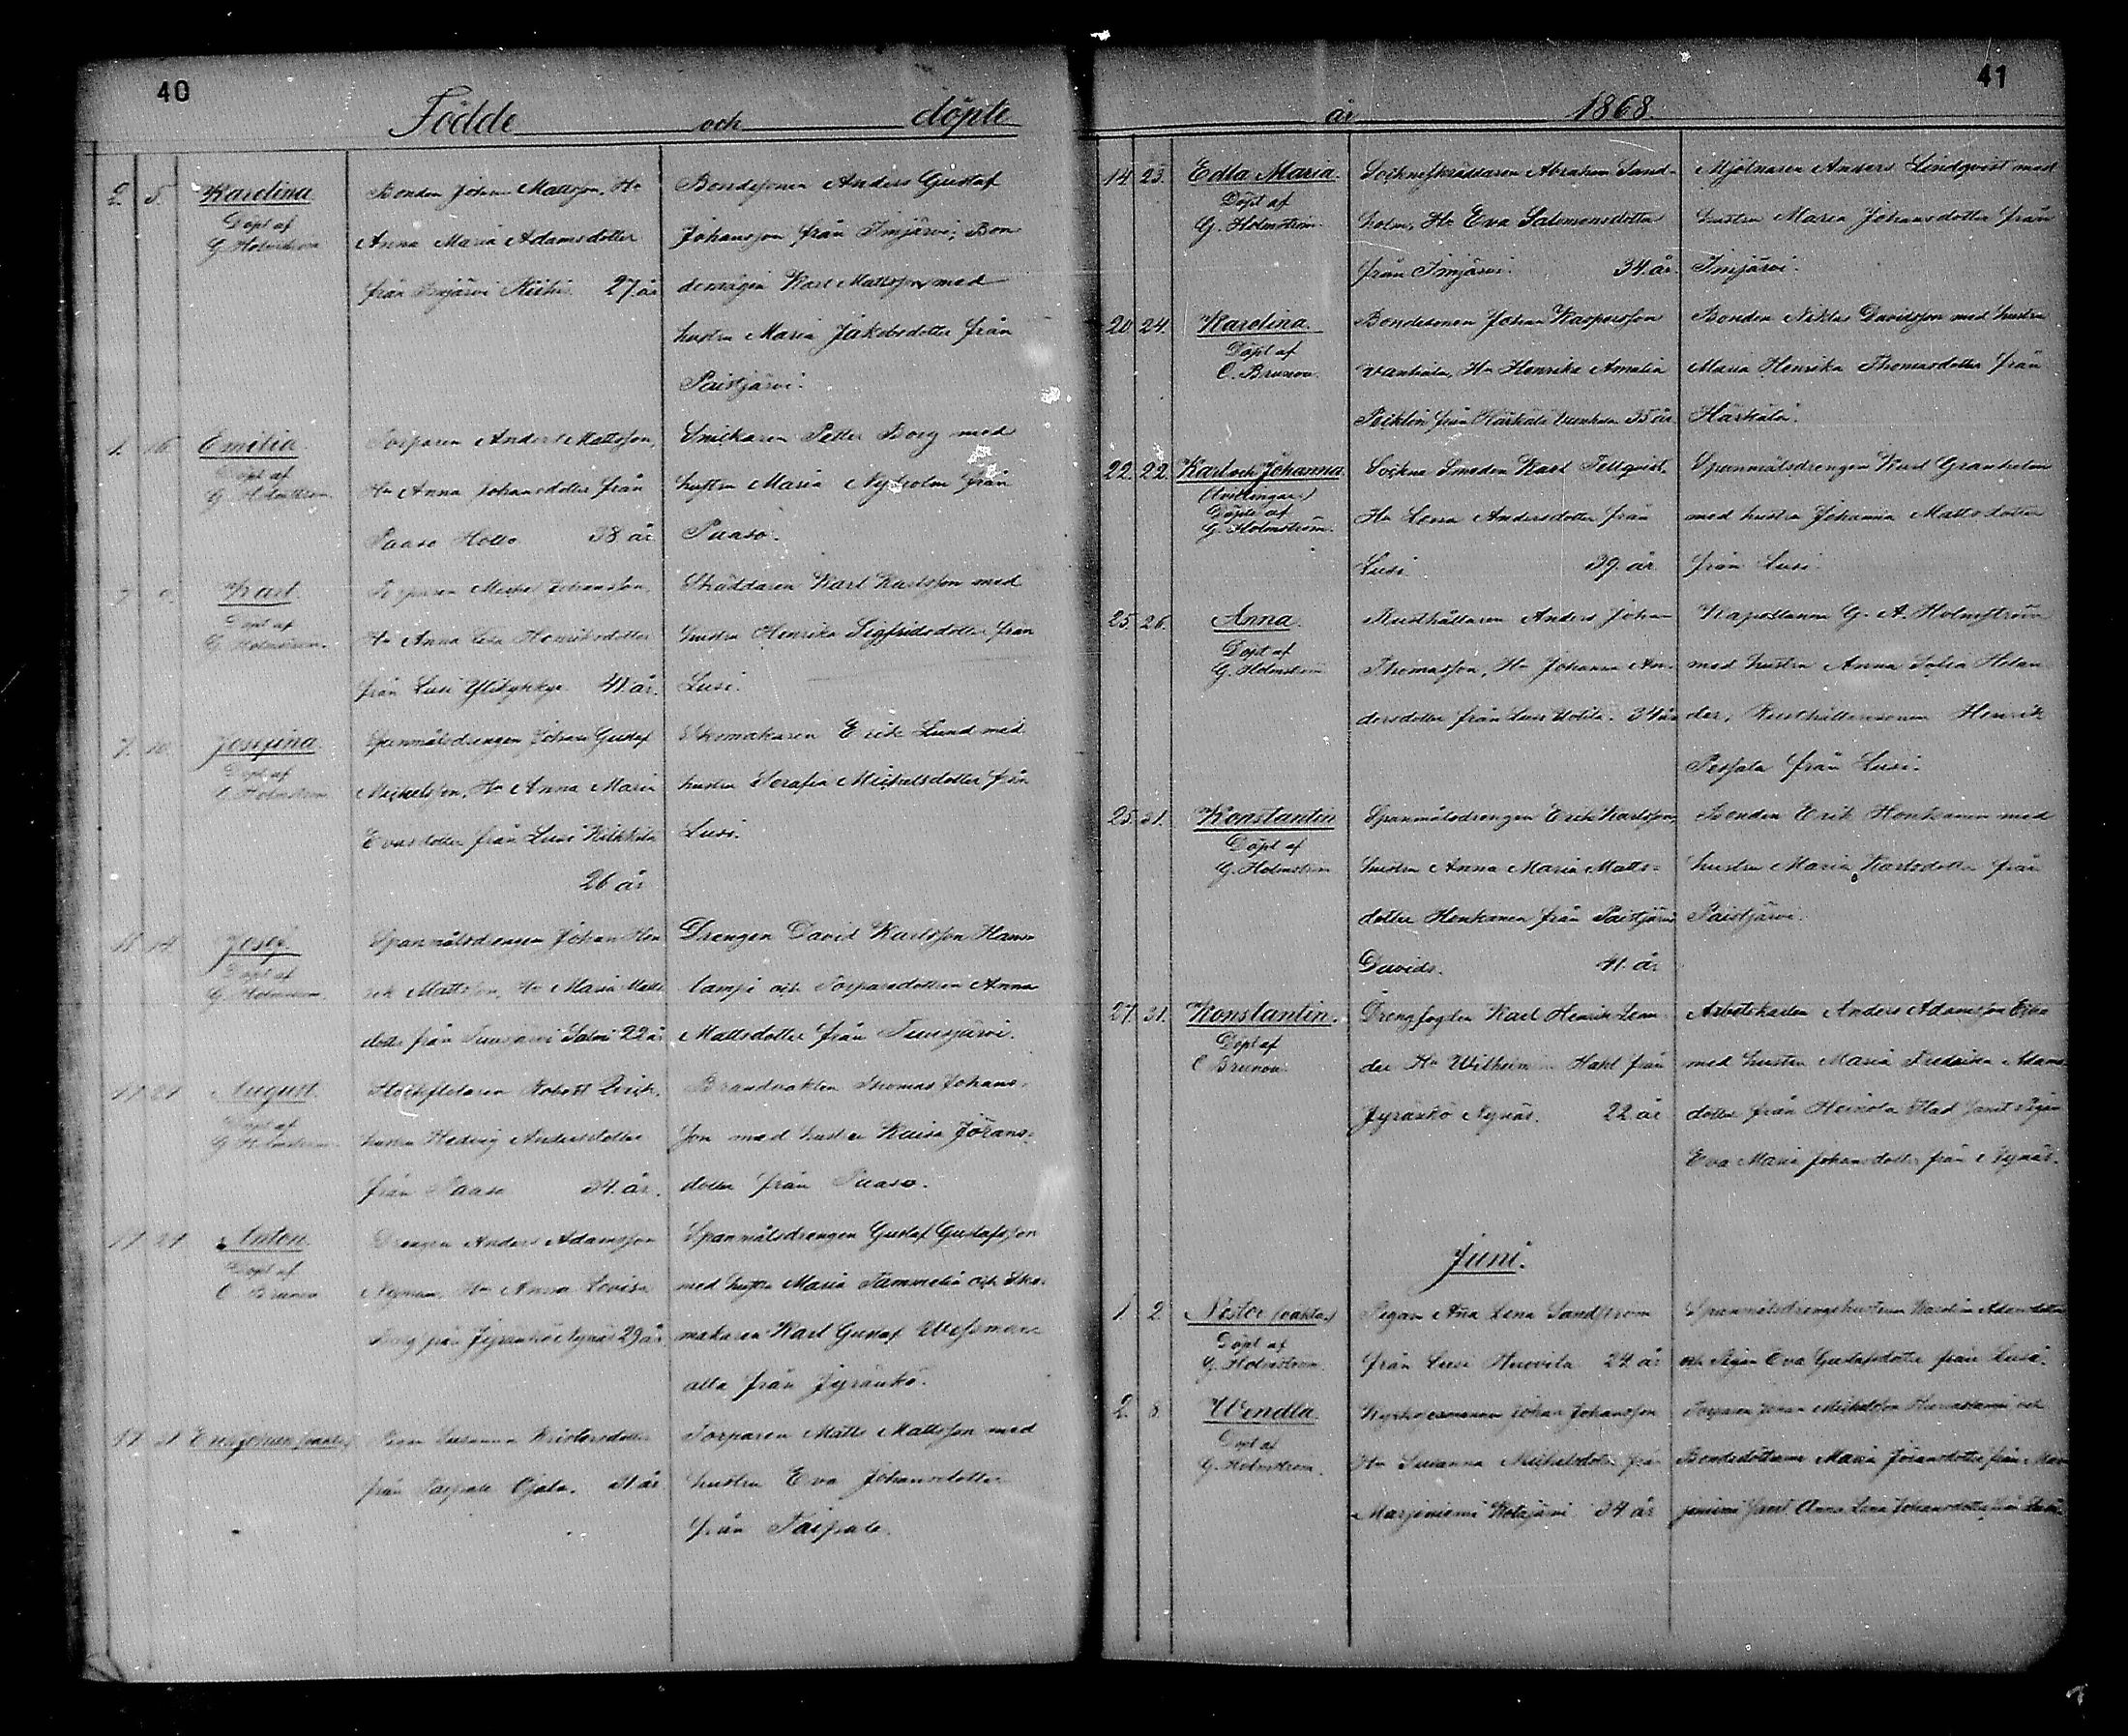 40
Födde och döpte
2. 5. Karolina
Döpt af
G. Holmström
Bonden Johan Mattsson, Hu
Anna Maria Adamsdotter
från Imjärvi 27. år
Bondesonen Anders Gustaf
Johansson från Imjärvi; Bon
demågen Karl Mattsson med
hustru Maria Jakobsdotter från
Paistjärvi.
16. Emilia
Döpt af
G. Holmström
Torparen Anders Mattsson,
Hu Anna Johansdotter från
Paaso 38 år
Snickaren Petter Borg med
hustru Maria Nyholm från
Paaso.
Karl
Döpt af
G. Holmström.
Torparen Michel Johansson,
Hu Anna Lisa Henriksdotter
från Lusi 41 år.
Skräddaren Karl Karlsson med
hustru Henrika Sigfridsdotter från
Lusi.
7. 10. Josefina
Döpt af
G. Holmström
Spanmålsdrengen Johan Gustaf
Michelsson, Hu Anna Maria
Evasdotter från Lusi
26 år
Skomakaren Erik Lund med
hustru Serafia Michelsdotter från
Lusi.
14. Josef
Döpt af
G. Holmström
Spanmålsdrengen Johan Hen
rik Mattsson, Hu Maria Matts
dotter från Salmi 22 år
Drengen David Karlsson Hans
lampi och Torparedottren Anna
Mattsdotter från Tuusjärvi.
August
Döpt af
G. Holmström
Robert
hustru Hedvig Andersdotter
från Paaso 34. år.
Brandvakten Thomas Johans-
son med hustru Kaisa Johans-
dotter från Paaso.
Anton
Döpt af
C. Brunou
Drengen Anders Adamsson
Nyman, Hu Anna Lovisa
Borg från Jyränkö Nynäs 29 år.
Spanmålsdrengen Gustaf Gustafsson
med hustru Maria Tammelin och Sko-
makaren Karl Gustaf
alla från Jyränkö.
Erik Johan (oäkta)
Pigan Susanna Kristersdotter
från Taipale Ojala. 31 år
Torparen Matts Mattsson med
hustru Eva Johansdotter
från Taipale.
41
år 1868.
14. 23. Edla Maria.
Döpt af
G. Holmström.
Sockneskräddaren Abraham Sand-
holm, Hu Eva Salomonsdotter
från Imjärvi. 34. år.
Mjölnaren Anders Lindqvist med
hustru Maria Johansdotter från
Imjärvi.
20. 24. Karolina.
Döpt af
C. Brunou.
Bondesonen Johan Kaspersson
Vanhala, Hu Henrika Amalia
från Härkälä Vanhala 35 år
Bonden Niklas Davidsson med hustru
Maria Henrika Thomasdotter från
Härkälä.
22. 22. Karl och Johanna.
(tvillingar)
Döpte af
G. Holmström.
Sockne Smeden Karl Tellqvist,
Hu Lena Andersdotter från
Lusi 39. år
Spanmålsdrengen Karl Granholm
med hustru Johanna Mattsdotter
från Lusi.
25. 26. Anna.
Döpt af
G. Holmström
Rusthållaren Anders Johan
Thomasson, Hu Johanna An-
dersdotter från Lusi Uotila. 34 år
Kapellanen G. A. Holmström
med hustru Anna Sofia Helan
der, Rusthållaresonen Henrik
från Lusi.
25. 31. Konstantin
Döpt af
G. Holmström
Spanmålsdrengen Erik Karlsson,
hustru Anna Maria Matts-
dotter Honkanen från Paistjärvi
Davids. 41. år
Bonden Erik Honkanen med
hustru Maria Karlsdotter från
Paistjärvi.
27. 31. Konstantin.
Döpt af
C. Brunou.
Drengfogden Karl Henrik Lean
der Hu Wilhelmina från
Jyränkö Nynäs. 22 år
Arbetskarlen Anders Adamsson
med hustru Maria Fredrika Adams
dotter från Heinola Stad samt Pigan
Eva Maria Johansdotter från Nynäs.
Juni.
1 2 Nestor (oäkta)
Döpt af
G. Holmström.
Pigan Anna Lena Sandström
från Lusi Huovila 24 år
Spanmålsdrengshustrun Karolina Adamsdotter
och Pigan Eva Gustafsdotter från Lusi.
2. 8. Wendla.
Döpt af
G. Holmström.
Johan Johansson
Hu Susanna Michelsdotter från
Marjoniemi 34 år
Torparen Johan Michelsson och
Bondedottren Maria Johansdotter från Mar
joniemi samt Anna Lena Johansdotter från